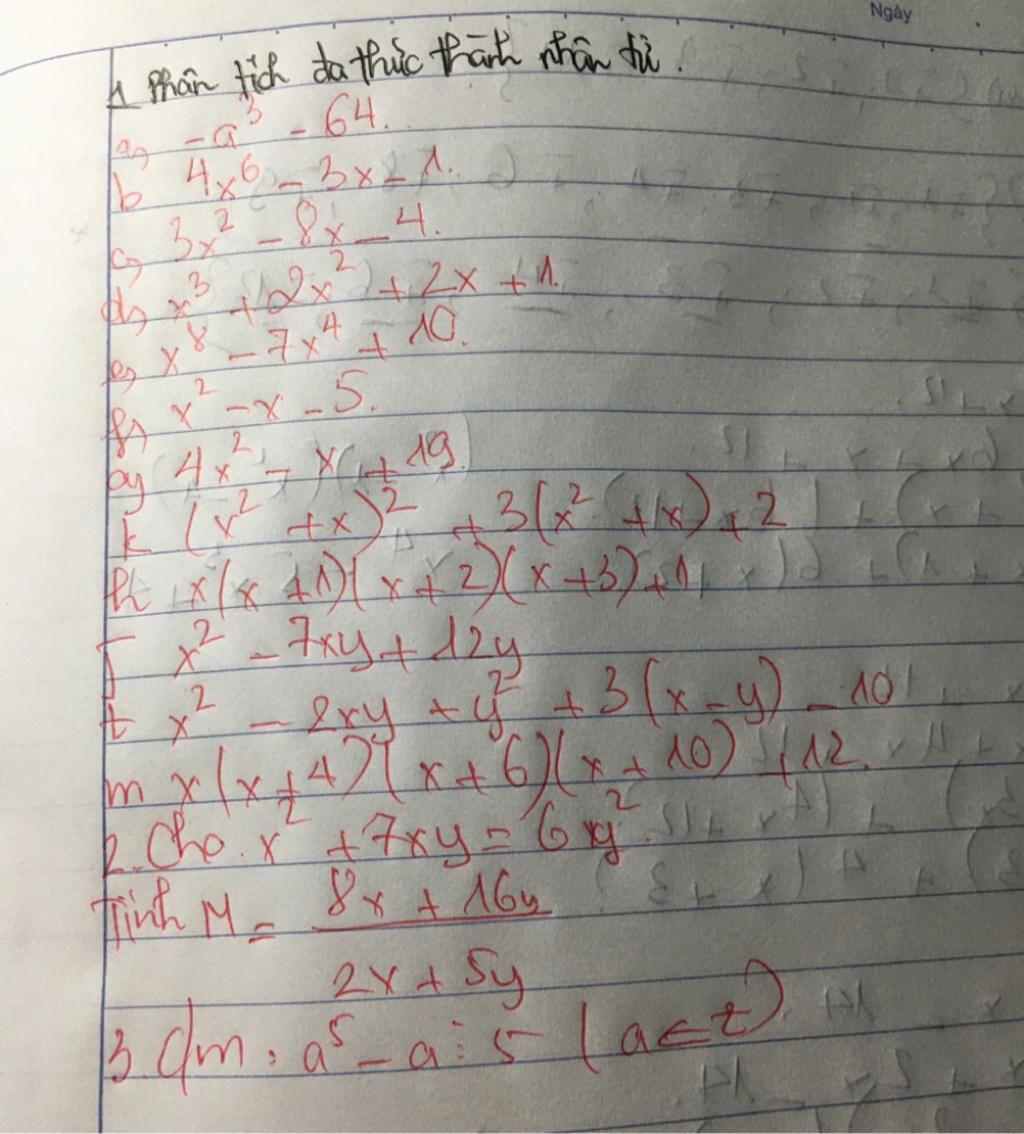 Ngày
1 Phân tích đa thức thành nhân tử.
a, -a³ - 64.
b 4x⁶ - 3x - 1.
c, 3x² - 8x - 4.
d, x³ + 2x² + 2x + 1.
e, x⁸ - 7x⁴ + 10.
f, x² - x - 5.
g 4x² - x + 19.
k (x² + x)² + 3(x² + x) + 2
h x(x + 1)(x + 2)(x + 3) + 1
j x² - 7xy + 12y
t x² - 2xy + y² + 3(x - y) - 10
m x(x + 4)(x + 6)(x + 10) + 12.
2. Cho. x² + 7xy = 6y².
Tính M = 8x + 16y
2x + 5y
3. c/m : a⁵ - a ⋮ 5 (a ∈ z)